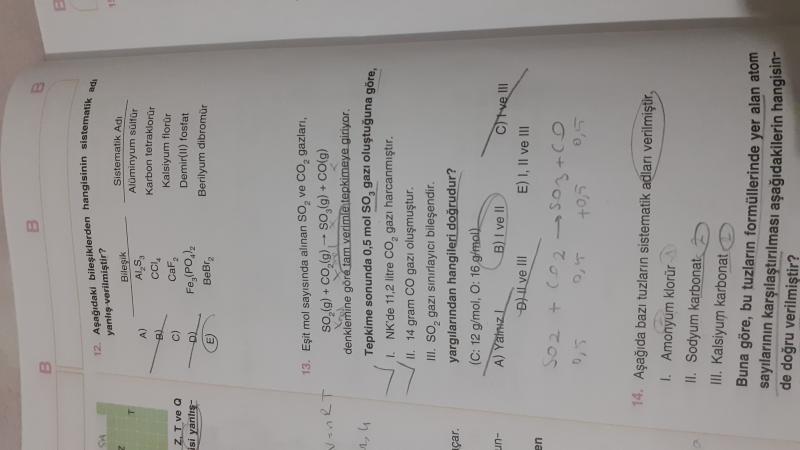 B
B
B
12. Aşağıdaki bileşiklerden hangisinin sistematik adı
yanlış verilmiştir?
Bileşik Sistematik Adı
A) Al2S3 Alüminyum sülfür
B) CCl4 Karbon tetraklorür
C) CaF2 Kalsiyum florür
D) Fe3(PO4)2 Demir(II) fosfat
E) BeBr2 Berilyum dibromür
13. Eşit mol sayısında alınan SO2 ve CO2 gazları,
SO2(g) + CO2(g) → SO3(g) + CO(g)
denklemine göre tam verimle tepkimeye giriyor.
Tepkime sonunda 0,5 mol SO3 gazı oluştuğuna göre,
I. NK'de 11,2 litre CO2 gazı harcanmıştır.
II. 14 gram CO gazı oluşmuştur.
III. SO2 gazı sınırlayıcı bileşendir.
yargılarından hangileri doğrudur?
(C: 12 g/mol, O: 16 g/mol)
A) Yalnız I B) I ve II C) I ve III
D) II ve III E) I, II ve III
SO2 + CO2 → SO3 + CO
0,5 0,5 +0,5 0,5
14. Aşağıda bazı tuzların sistematik adları verilmiştir.
I. Amonyum klorür
II. Sodyum karbonat
III. Kalsiyum karbonat
Buna göre, bu tuzların formüllerinde yer alan atom
sayılarının karşılaştırılması aşağıdakilerin hangisin-
de doğru verilmiştir?
Z
T
Z, T ve Q
isi yanlış-
V=nRT
çar.
un-
en